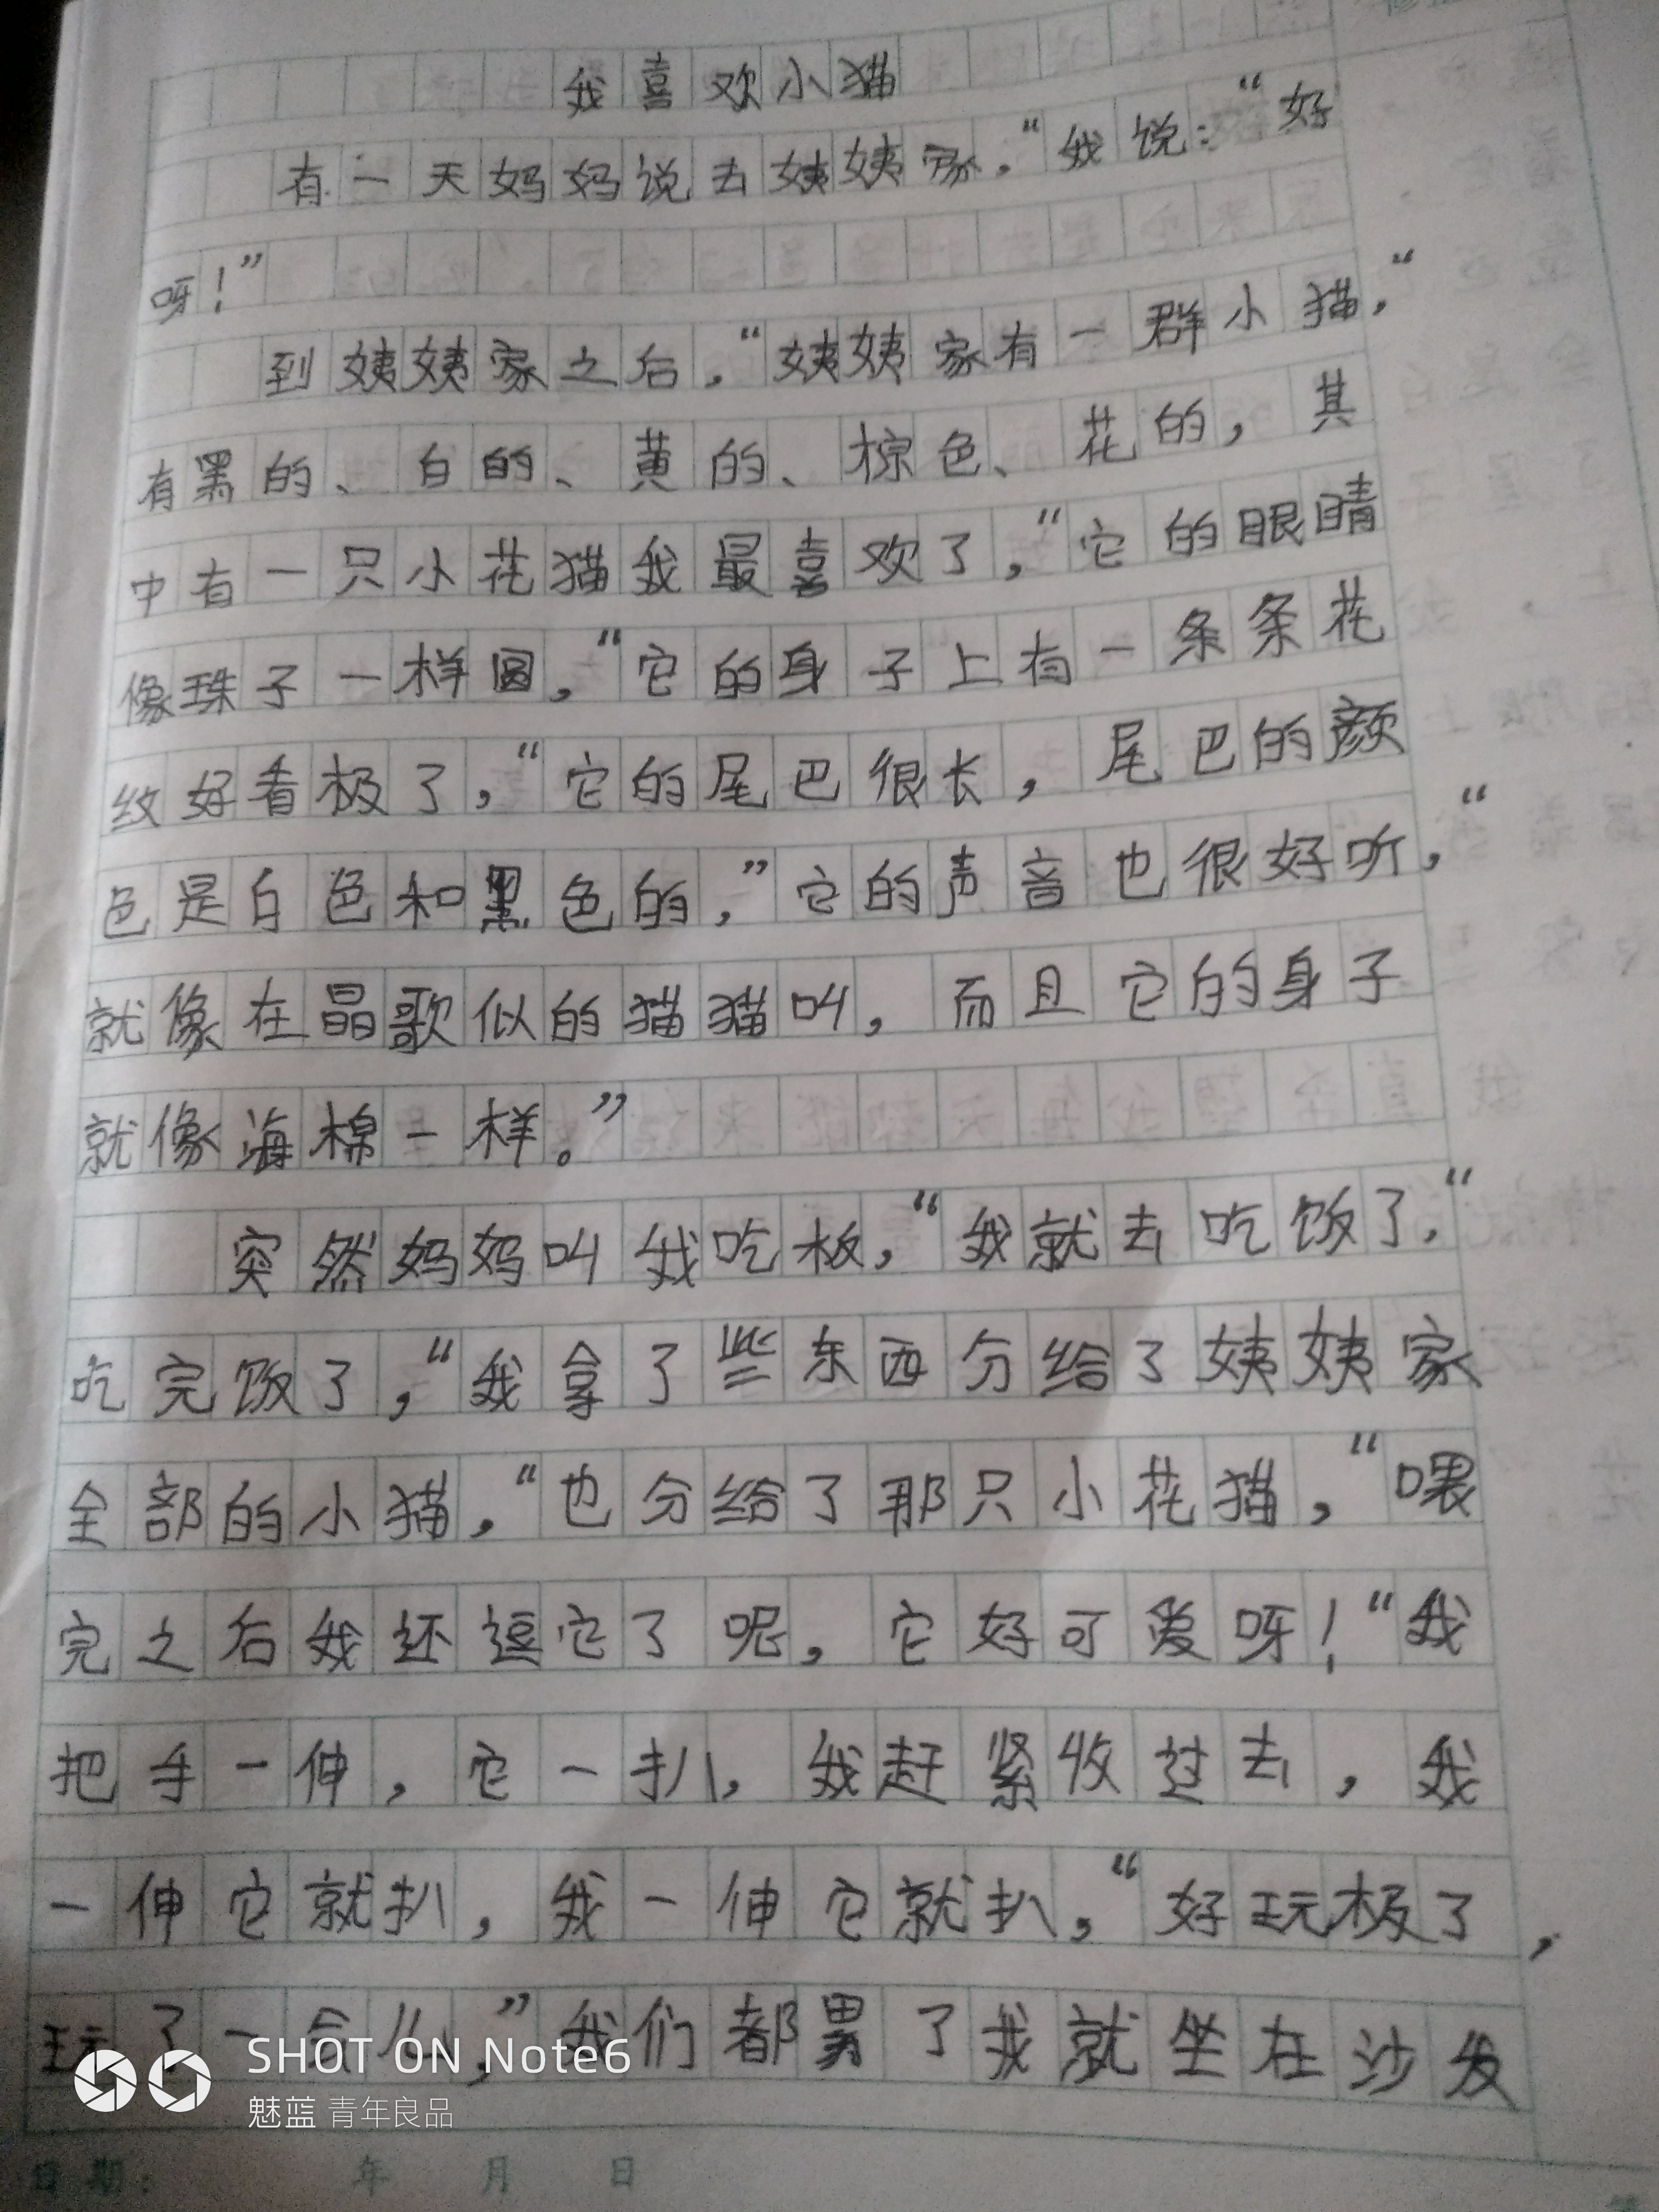 我喜欢小猫
有一天妈妈说去姨姨家，“我说：“好
呀！”
到姨姨家之后，“姨姨家有一群小猫，“
有黑的、白的、黄的、棕色、花的，其
中有一只小花猫我最喜欢了，“它的眼睛
像珠子一样圆，“它的身子上有一条条花
纹好看极了，“它的尾巴很长，尾巴的颜
色是白色和黑色的，”它的声音也很好听，“
就像在晶歌似的猫猫叫，而且它的身子
就像海棉一样。”
突然妈妈叫我吃板，“我就去吃饭了，“
吃完饭了，“我拿了些东西分给了姨姨家
全部的小猫，“也分给了那只小花猫，“喂
完之后我还逗它了呢，它好可爱呀！“我
把手一伸，它一扒，我赶紧收过去，我
一伸它就扒，我一伸它就扒，“好玩极了，
玩了一会儿，”我们都累了我就坐在沙发
SHOT ON Note6
魅蓝 青年良品
日期： 年 月 日